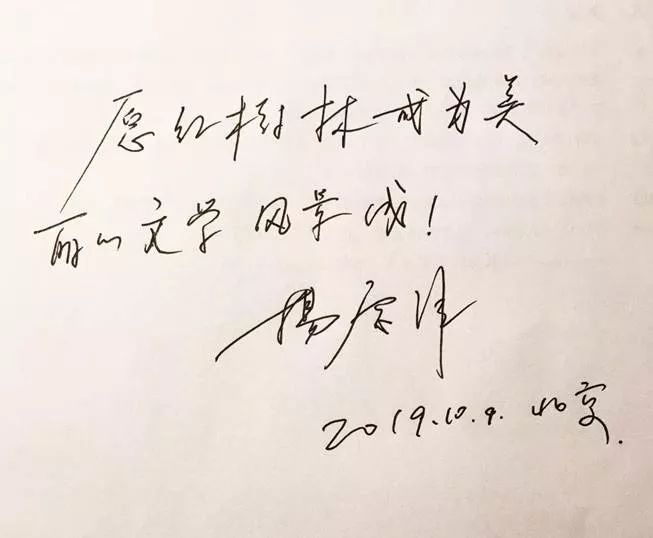 愿红树林成为美
丽的文学风景线!
2019.10.9. 北京.